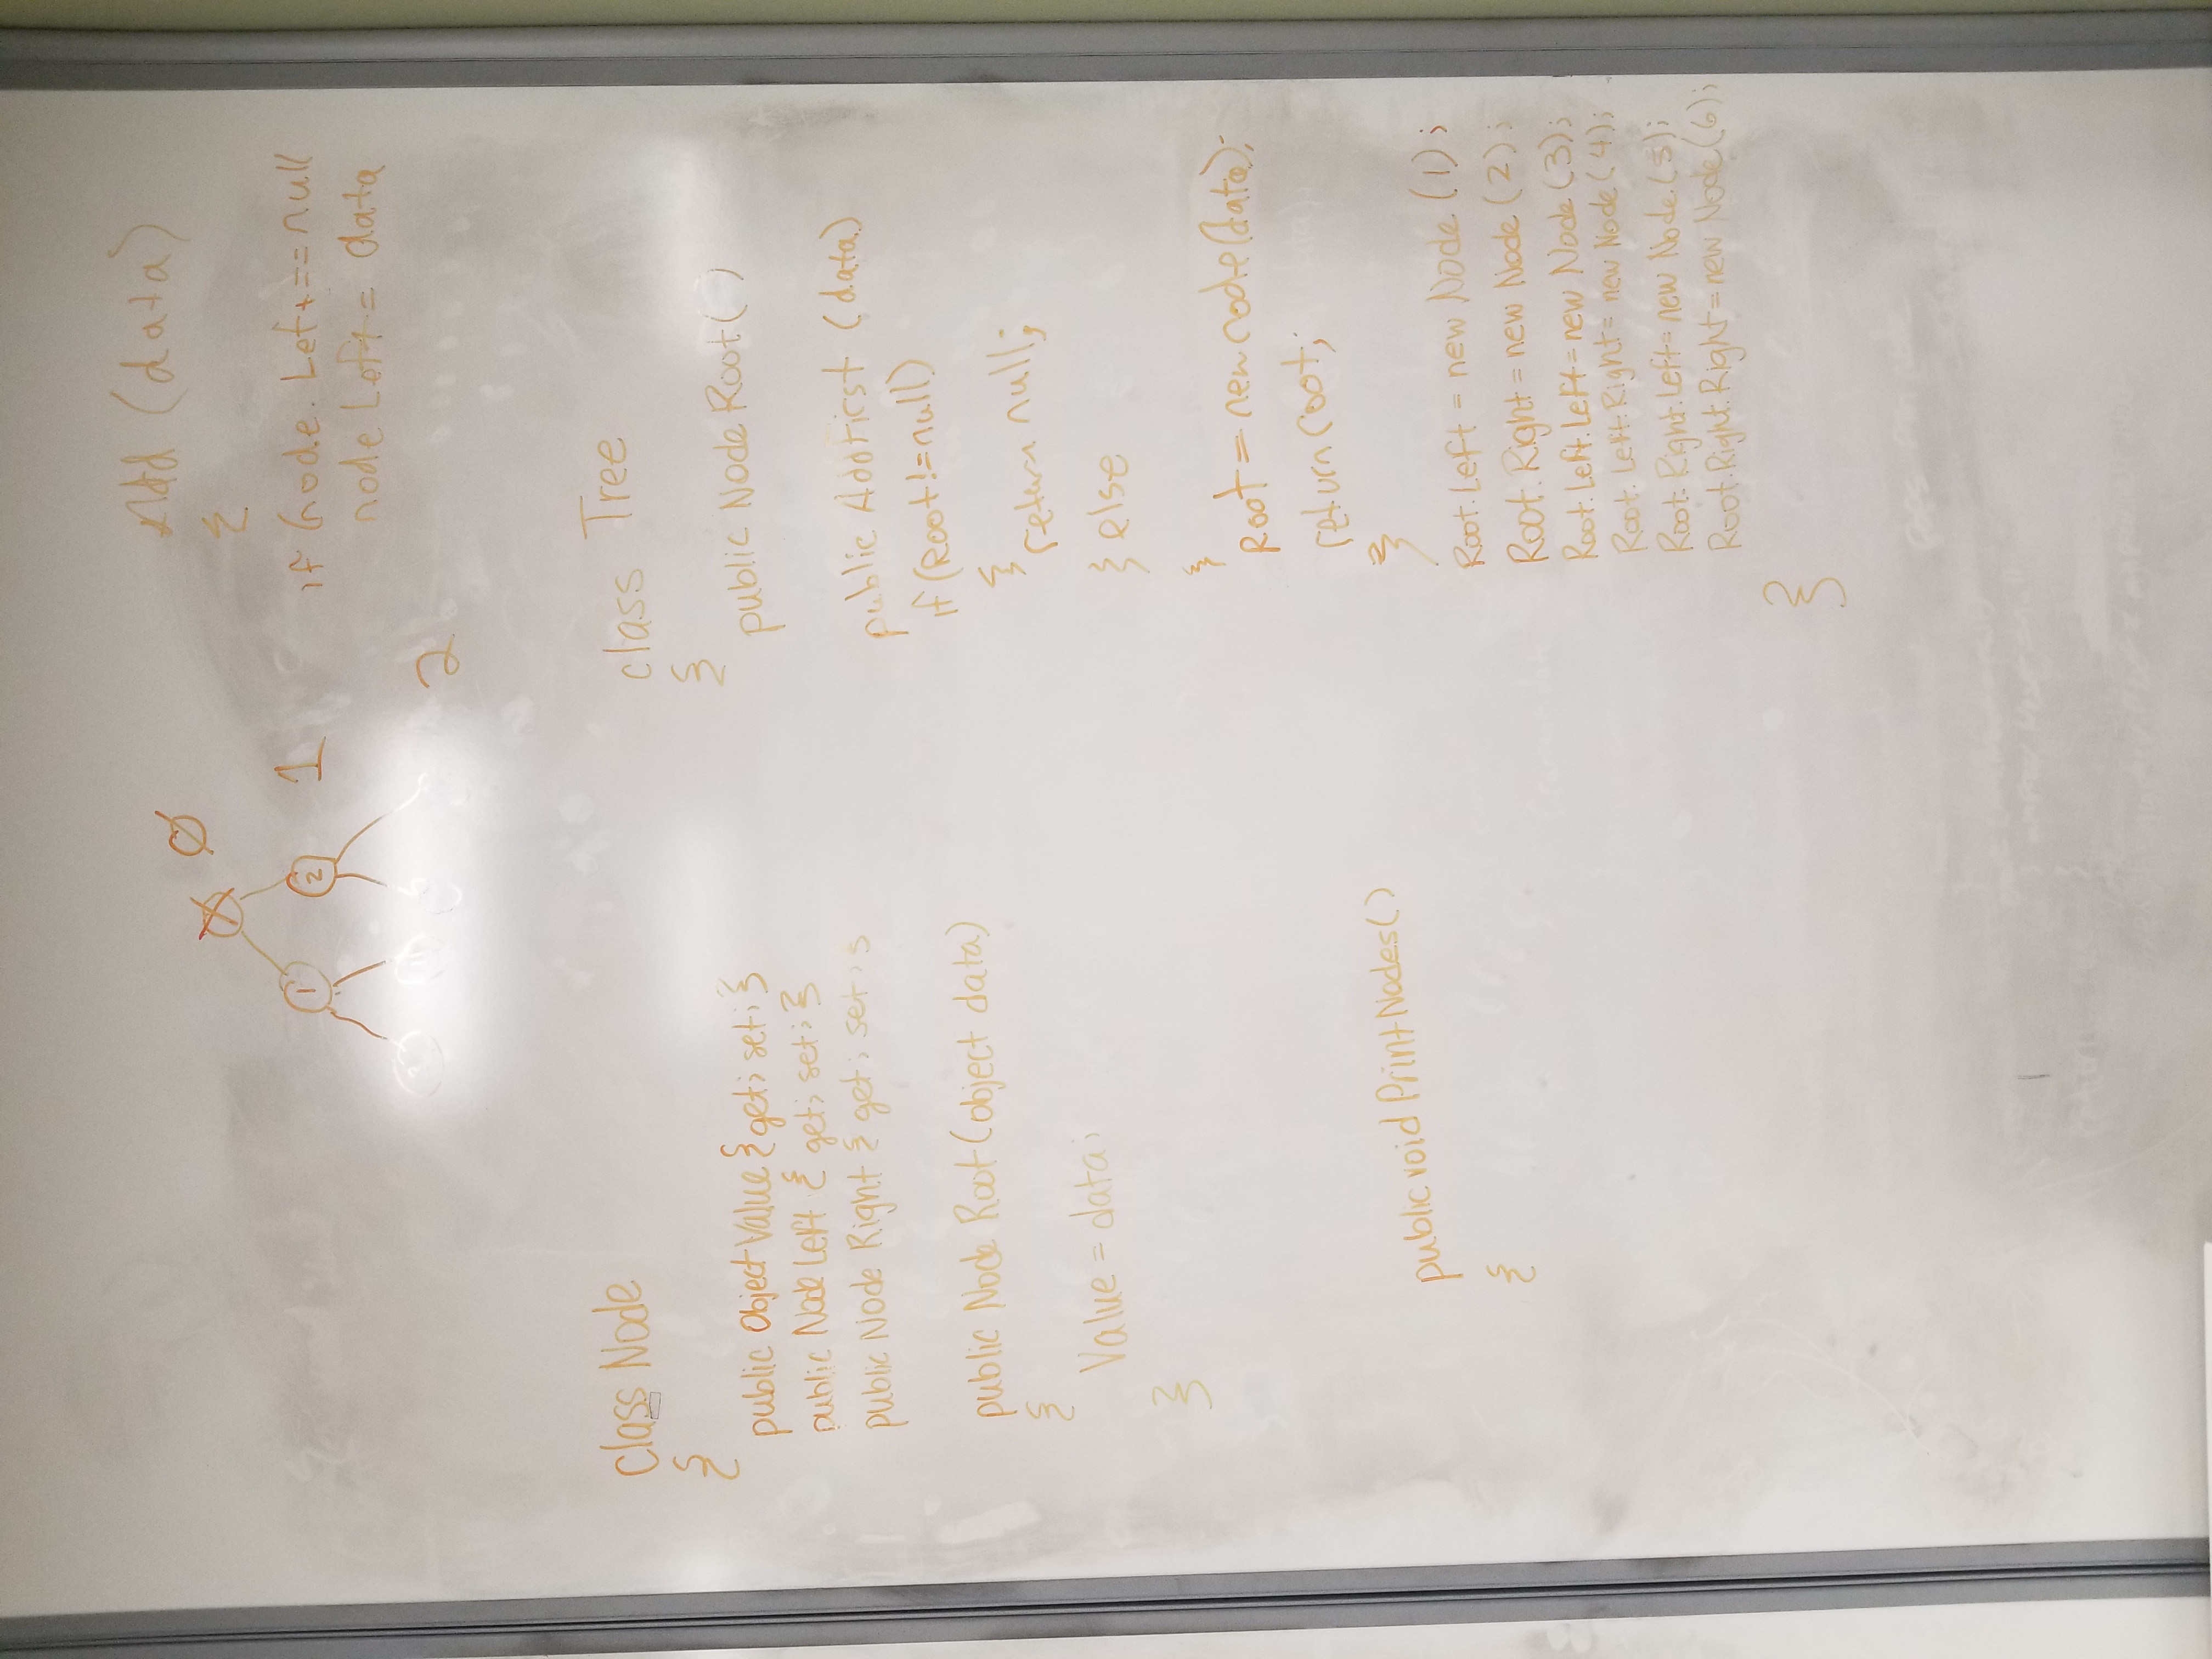 Add (data)
{
if (node.Left==null
node Left = data
Ø
1
2
1
2
class Node
{
public Object Value {get; set;}
public Node Left { get; set; }
public Node Right { get; set; }
public Node Root(object data)
{
Value = data;
}
public void PrintNodes()
{
class Tree
{
public Node Root()
public AddFirst (data)
if (Root!=null)
{
return null;
} else
{
Root = new node(data);
return root;
}
Root.Left = new Node (1);
Root.Right = new Node (2);
Root.Left.Left = new Node (3);
Root.Left.Right = new Node (4);
Root.Right.Left = new Node (5);
Root.Right.Right = new Node (6);
}